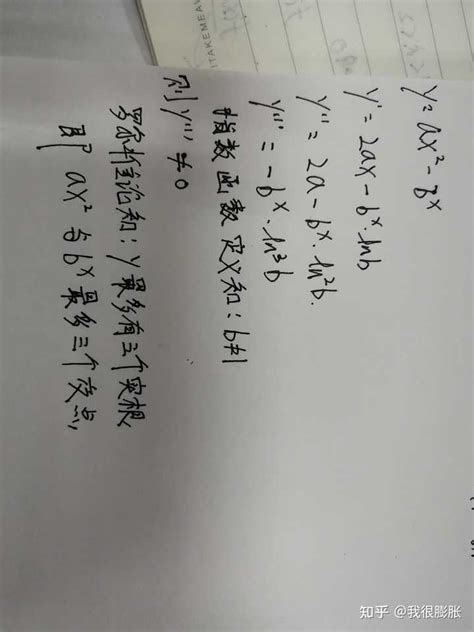 y=ax²-b^x
y'=2ax-b^x·lnb
y''=2a-b^x·ln²b.
y'''=-b^x·ln³b
指数函数定义知:b≠1
则y'''≠0
罗尔推论知:y最多有三个实根,
即 ax²与b^x最多三个交点,
TAKEMEAW
知乎 @我很膨胀